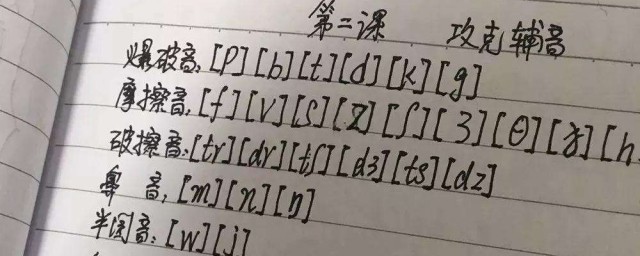 第二课 攻克辅音
爆破音:[p][b][t][d][k][g]
摩擦音:[f][v][s][z][ʃ][ʒ][θ][ð][h
破擦音:[tr][dr][tʃ][dʒ][ts][dz]
鼻 音:[m][n][ŋ]
半闭音:[w][j]